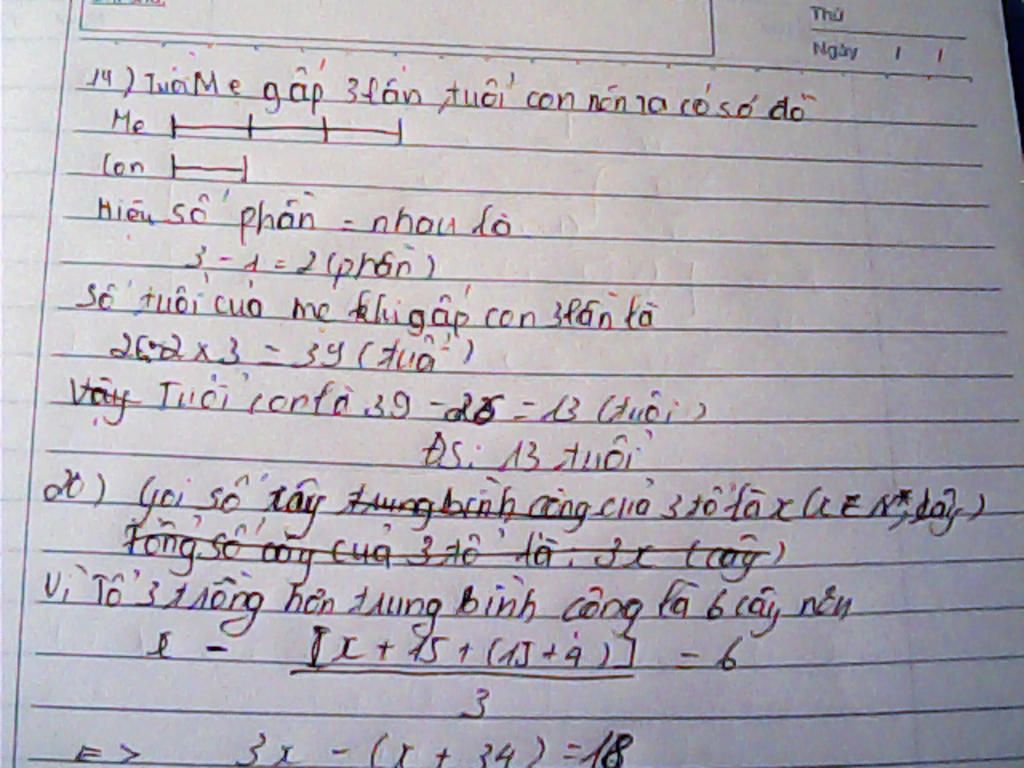 Thứ
Ngày / /
14) Tuổi Mẹ gấp 3 lần tuổi con nên ta có sơ đồ
Mẹ
Con
Hiệu số phần = nhau là
3 - 1 = 2 (phần)
Số tuổi của mẹ khi gấp con 3 lần là
26:2 x 3 = 39 (tuổi)
Vậy Tuổi con là 39 - 26 = 13 (tuổi)
ĐS: 13 tuổi
) Gọi số cây trung bình cộng của 3 tổ là x (x ∈ N*, cây)
Tổng số cây của 3 tổ là: 3x (cây)
Vì Tổ 3 trồng hơn trung bình cộng là 6 cây nên
x - [x + 15 + (15 + 4)] = 6
3
=> 3x - (x + 34) = 18